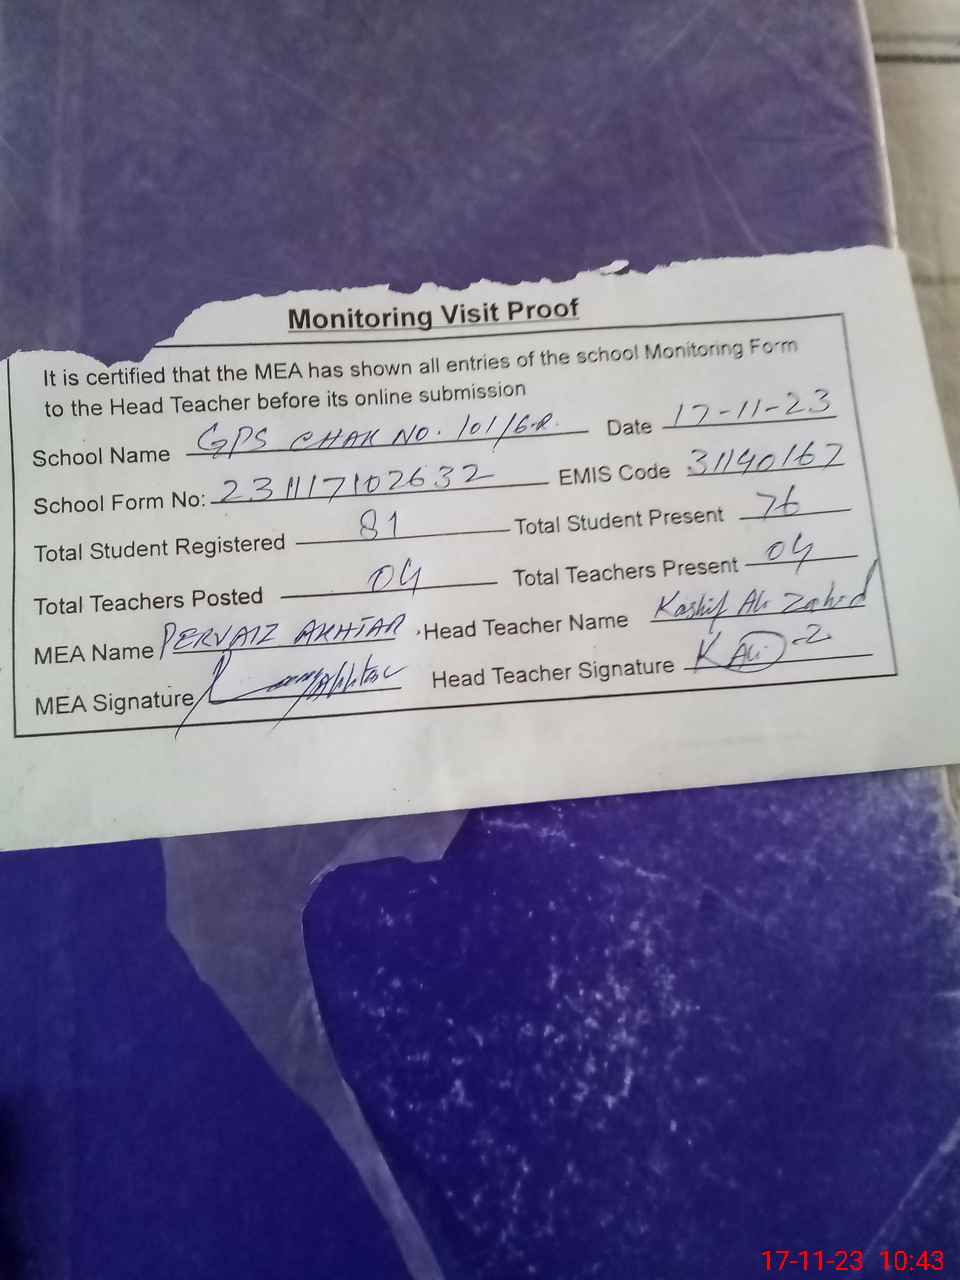 Monitoring Visit Proof
It is certified that the MEA has shown all entries of the school Monitoring Form
to the Head Teacher before its online submission
School Name GPS CHAK NO. 101/6-R. Date 17-11-23
School Form No: 231117102632 EMIS Code 31140167
Total Student Registered 81 Total Student Present 76
Total Teachers Posted 04 Total Teachers Present 04
MEA Name PERVAIZ AKHTAR Head Teacher Name Kashif Ali Zahid
MEA Signature Head Teacher Signature K Ali
17-11-23 10:43